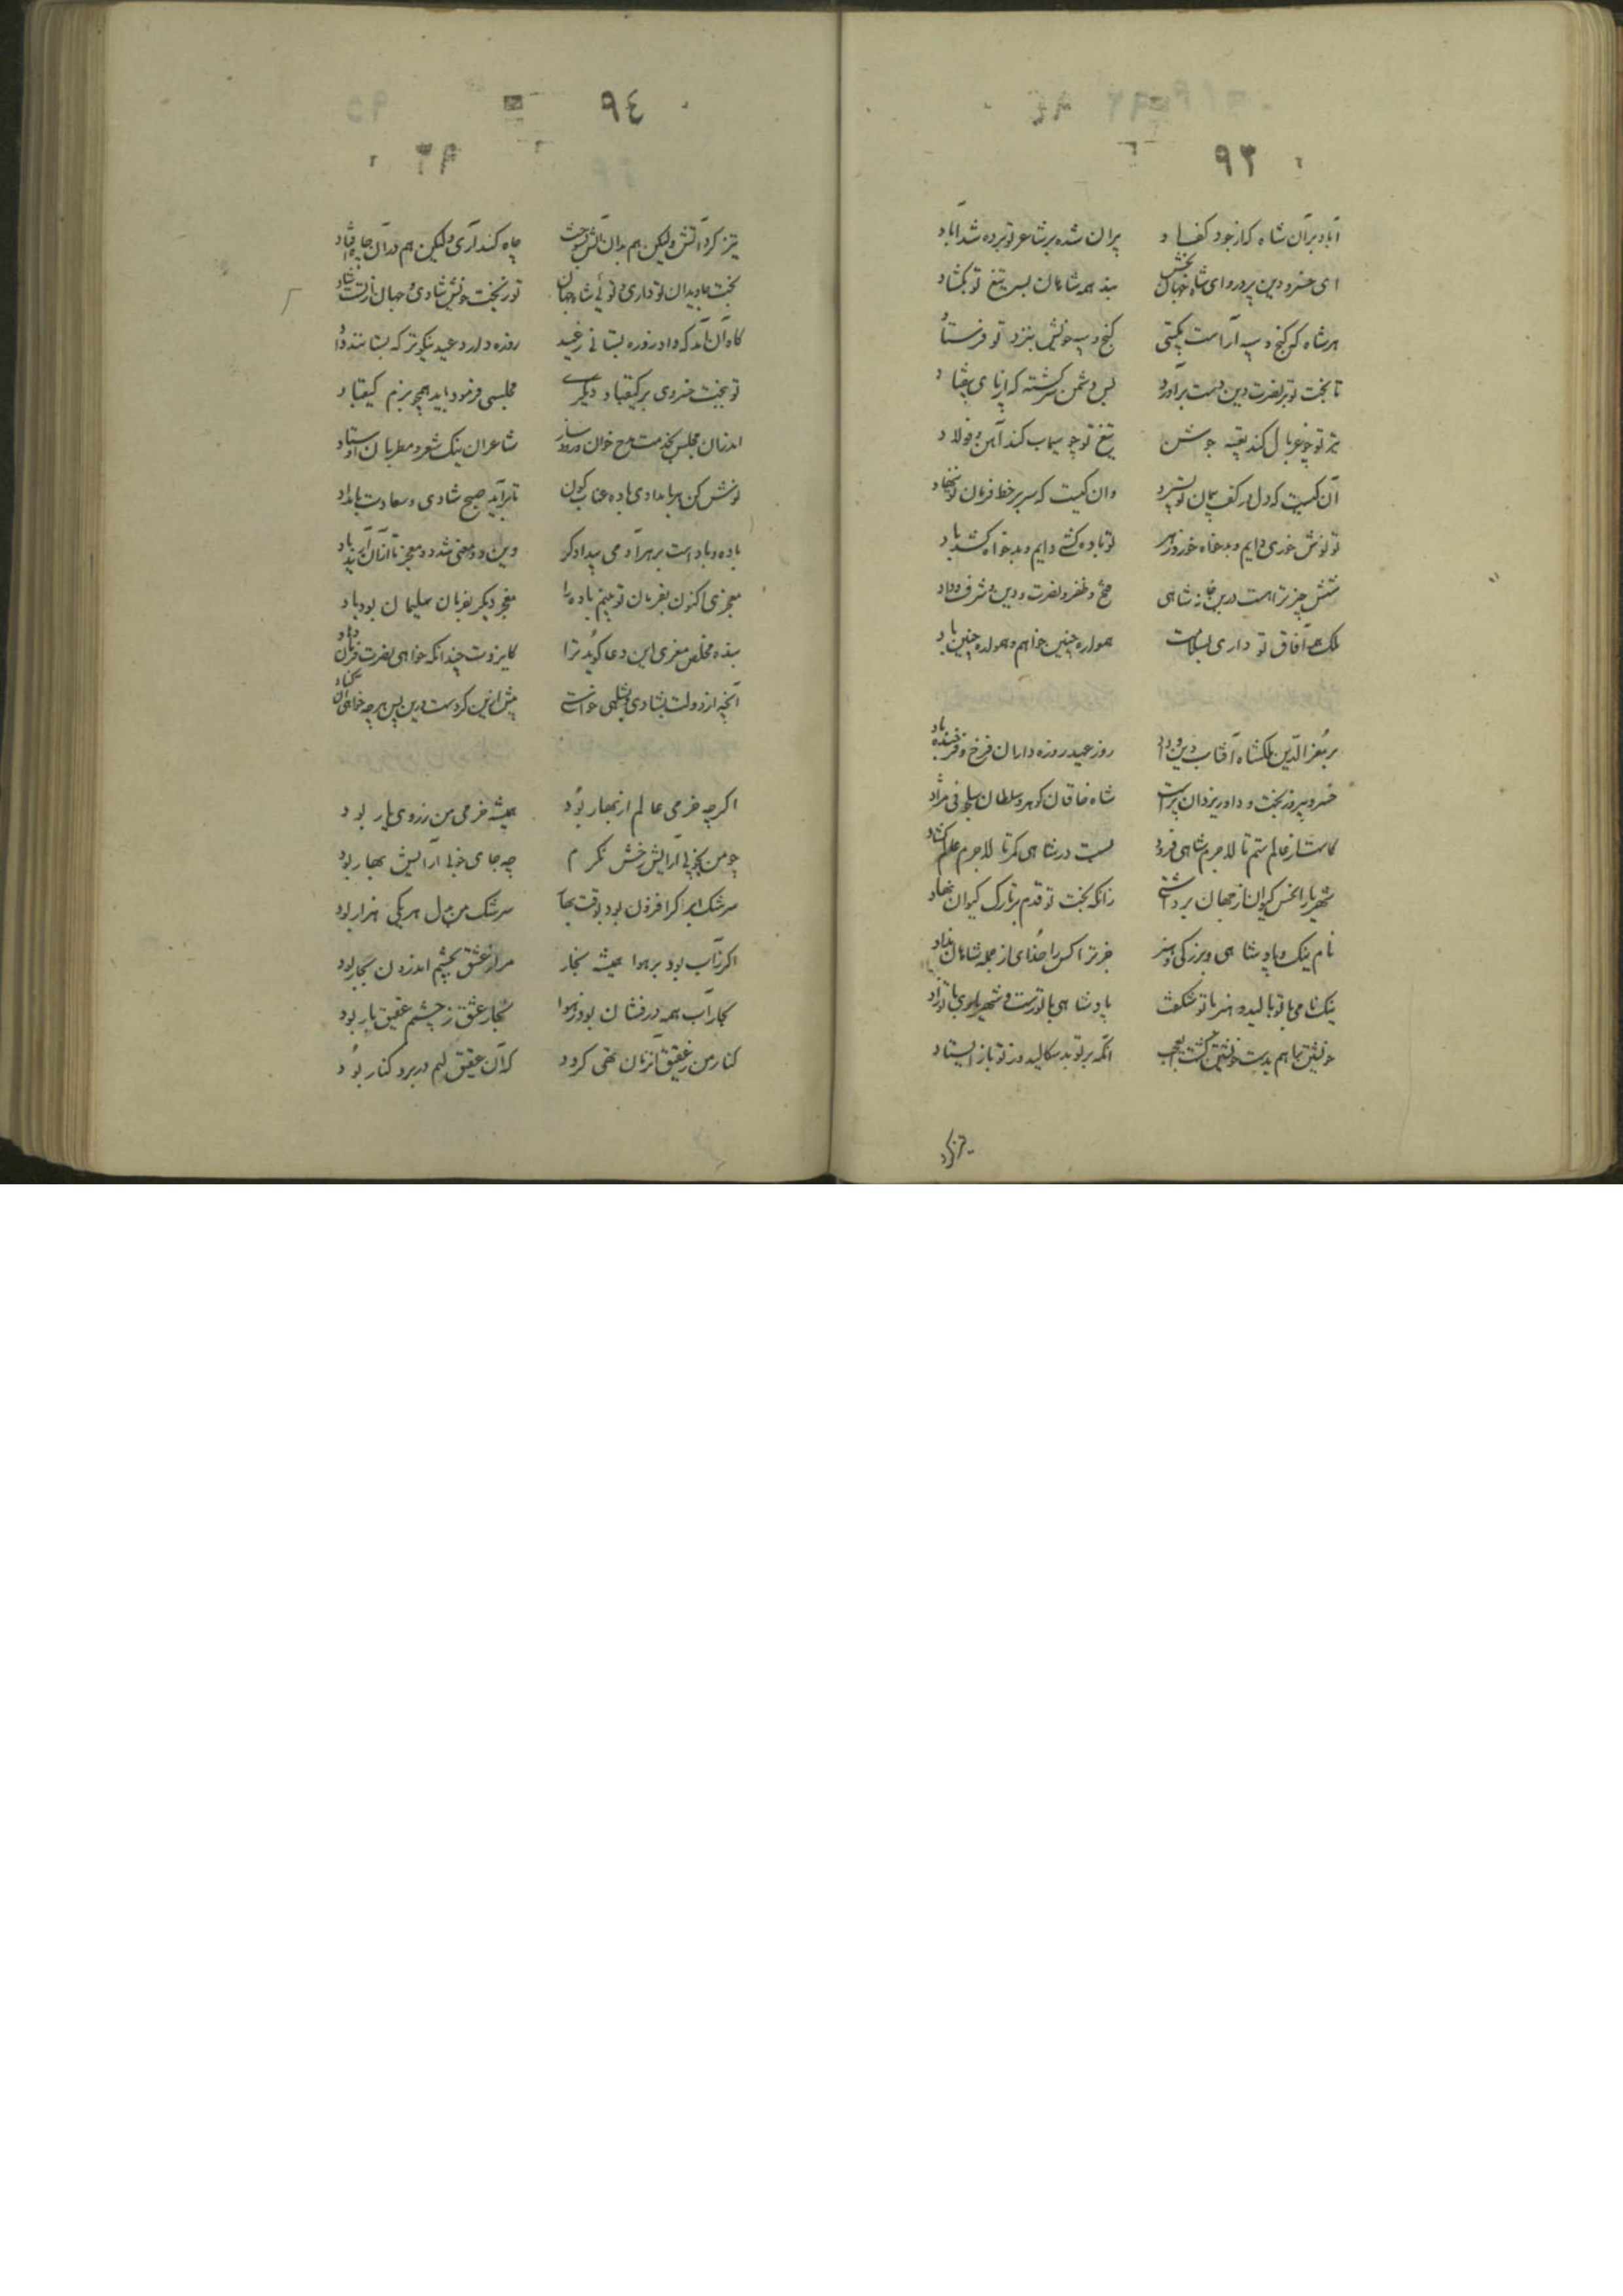 ٩٣
آباد بر آن شاه که از جود کف راد
پران شده بر شاعر تو برده شد آباد
ای خسرو دین پرور و ای شاه جهان بخش
بند همه شاهان بسر تیغ تو بگشاد
هر شاه که گنج و سپه آراست بگیتی
گنج و سپه خویش بنزد تو فرستاد
تا بخت تو بر نصرت دین دست برآورد
بس دشمن سرگشته که از پای بیفتاد
تیر تو چو غربال کند پیه جوشن
تیغ تو چو سیماب کند آهن و فولاد
آن کیست که دل بر کف پیمان تو نسپرد
وان کیست که سر بر خط فرمان تو ننهاد
تو نوش خوری دایم و بدخواه خورد زهر
تو باده کشی دایم و بدخواه کشد باد
شش چیز ترا هست درین خانه شاهی
فتح و ظفر و نصرت و دین و شرف و داد
ملک همه آفاق تو داری بسلامت
همواره چنین خواهم و همواره چنین باد
بر معز الدین ملکشاه آفتاب دین و داد
روز عید روزه داران فرخ و فرخنده باد
خسرو پیروز بخت و داور یزدان پرست
شاه خاقان گوهر و سلطان سلجوقی نژاد
کاست از عالم ستم تا لاجرم شاهی فزود
بست در شاهی کمر تا لاجرم عالم گشاد
شهریارا نحس کیوان از جهان برداشتی
زانکه بخت تو قدم بر تارک کیوان نهاد
نام نیک و پادشاهی و بزرگی و هنر
جز ترا کس را خدای از جمله شاهان نداد
نیکنامی با تو بالید و هنر با تو شکفت
پادشاهی با تو رست و شهریاری با تو زاد
خویشتن را هم بدست خویشتن کشت ای عجب
آنکه بر تو بد سکالید و ز تو باز ایستاد
٩٤
تیز کرد آتش ولیکن هم بدان آتش بسوخت
چاه کند آری ولیکن هم در آن چاه اوفتاد
بخت جاویدان تو داری و توئی شاه جهان
تو ز بخت خویش شادی و جهان از تست شاد
گاه آن آمد که داد روزه بستانی ز عید
روزه دارد عید نیکوتر که بستانند داد
تو ببخت خسروی بر کیقباد دیگری
مجلسی فرمود باید همچو بزم کیقباد
اندر آن مجلس بخدمت مدح خوان و رود ساز
شاعران نیک شعر و مطربان اوستاد
نوش کن هر بامدادی باده عناب گون
تا برآید صبح شادی و سعادت بامداد
باده و باد است بر هر آدمی بیدادگر
وین دو معنی شد دو معجز تا از آن آرند یاد
معجزی اکنون بفرمان تو بینم باده را
معجز دیگر بفرمان سلیمان بود باد
بنده مخلص معزی این دعا گوید ترا
کایزدت چندانکه خواهی نصرت و فرمان دهاد
آنچه از دولت بشادی و بشاهی خواستی
پیش ازین کردست و زین پس هر چه خواهی آن کناد
اگر چه خرمی عالم از بهار بود
همیشه خرمی من ز روی یار بود
چو من بخوبی آرایش رخش نگرم
چه جای خوبی آرایش بهار بود
سرشک ابر اگر افزون بود بوقت بهار
سرشک من بدل هر یکی هزار بود
اگر ز آب بود بر هوا همیشه بخار
مرا ز عشق بچشم اندرون بخار بود
بخار آب همه درفشان بود ز هوا
بخار عشق ز چشمم عقیق بار بود
کنار من ز عقیق آن زمان تهی گردد
که آن عقیق لبم در بر و کنار بود